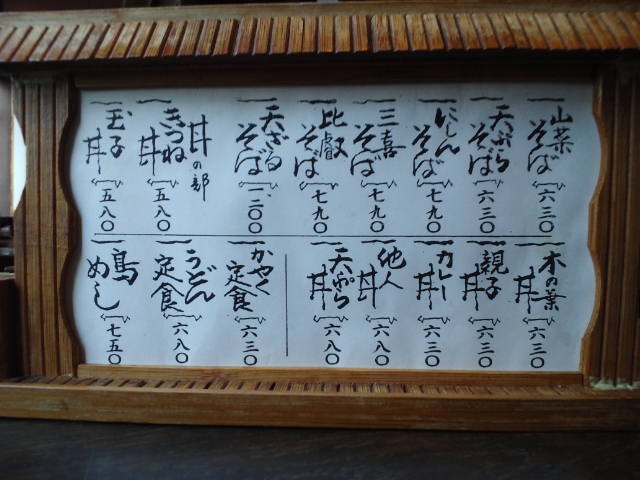 一、山菜そば 六三〇
一、天ぷらそば 六三〇
一、にしんそば 七九〇
一、三喜そば 七九〇
一、比叡そば 七九〇
一、天ざるそば 一、二〇〇
丼の部
一、きつね丼 五八〇
一、玉子丼 五八〇
一、木の葉丼 六三〇
一、親子丼 六三〇
一、カレー丼 六三〇
一、他人丼 六八〇
一、天ぷら丼 六八〇
一、かやく定食 六三〇
一、うどん定食 六八〇
一、鳥めし 七五〇